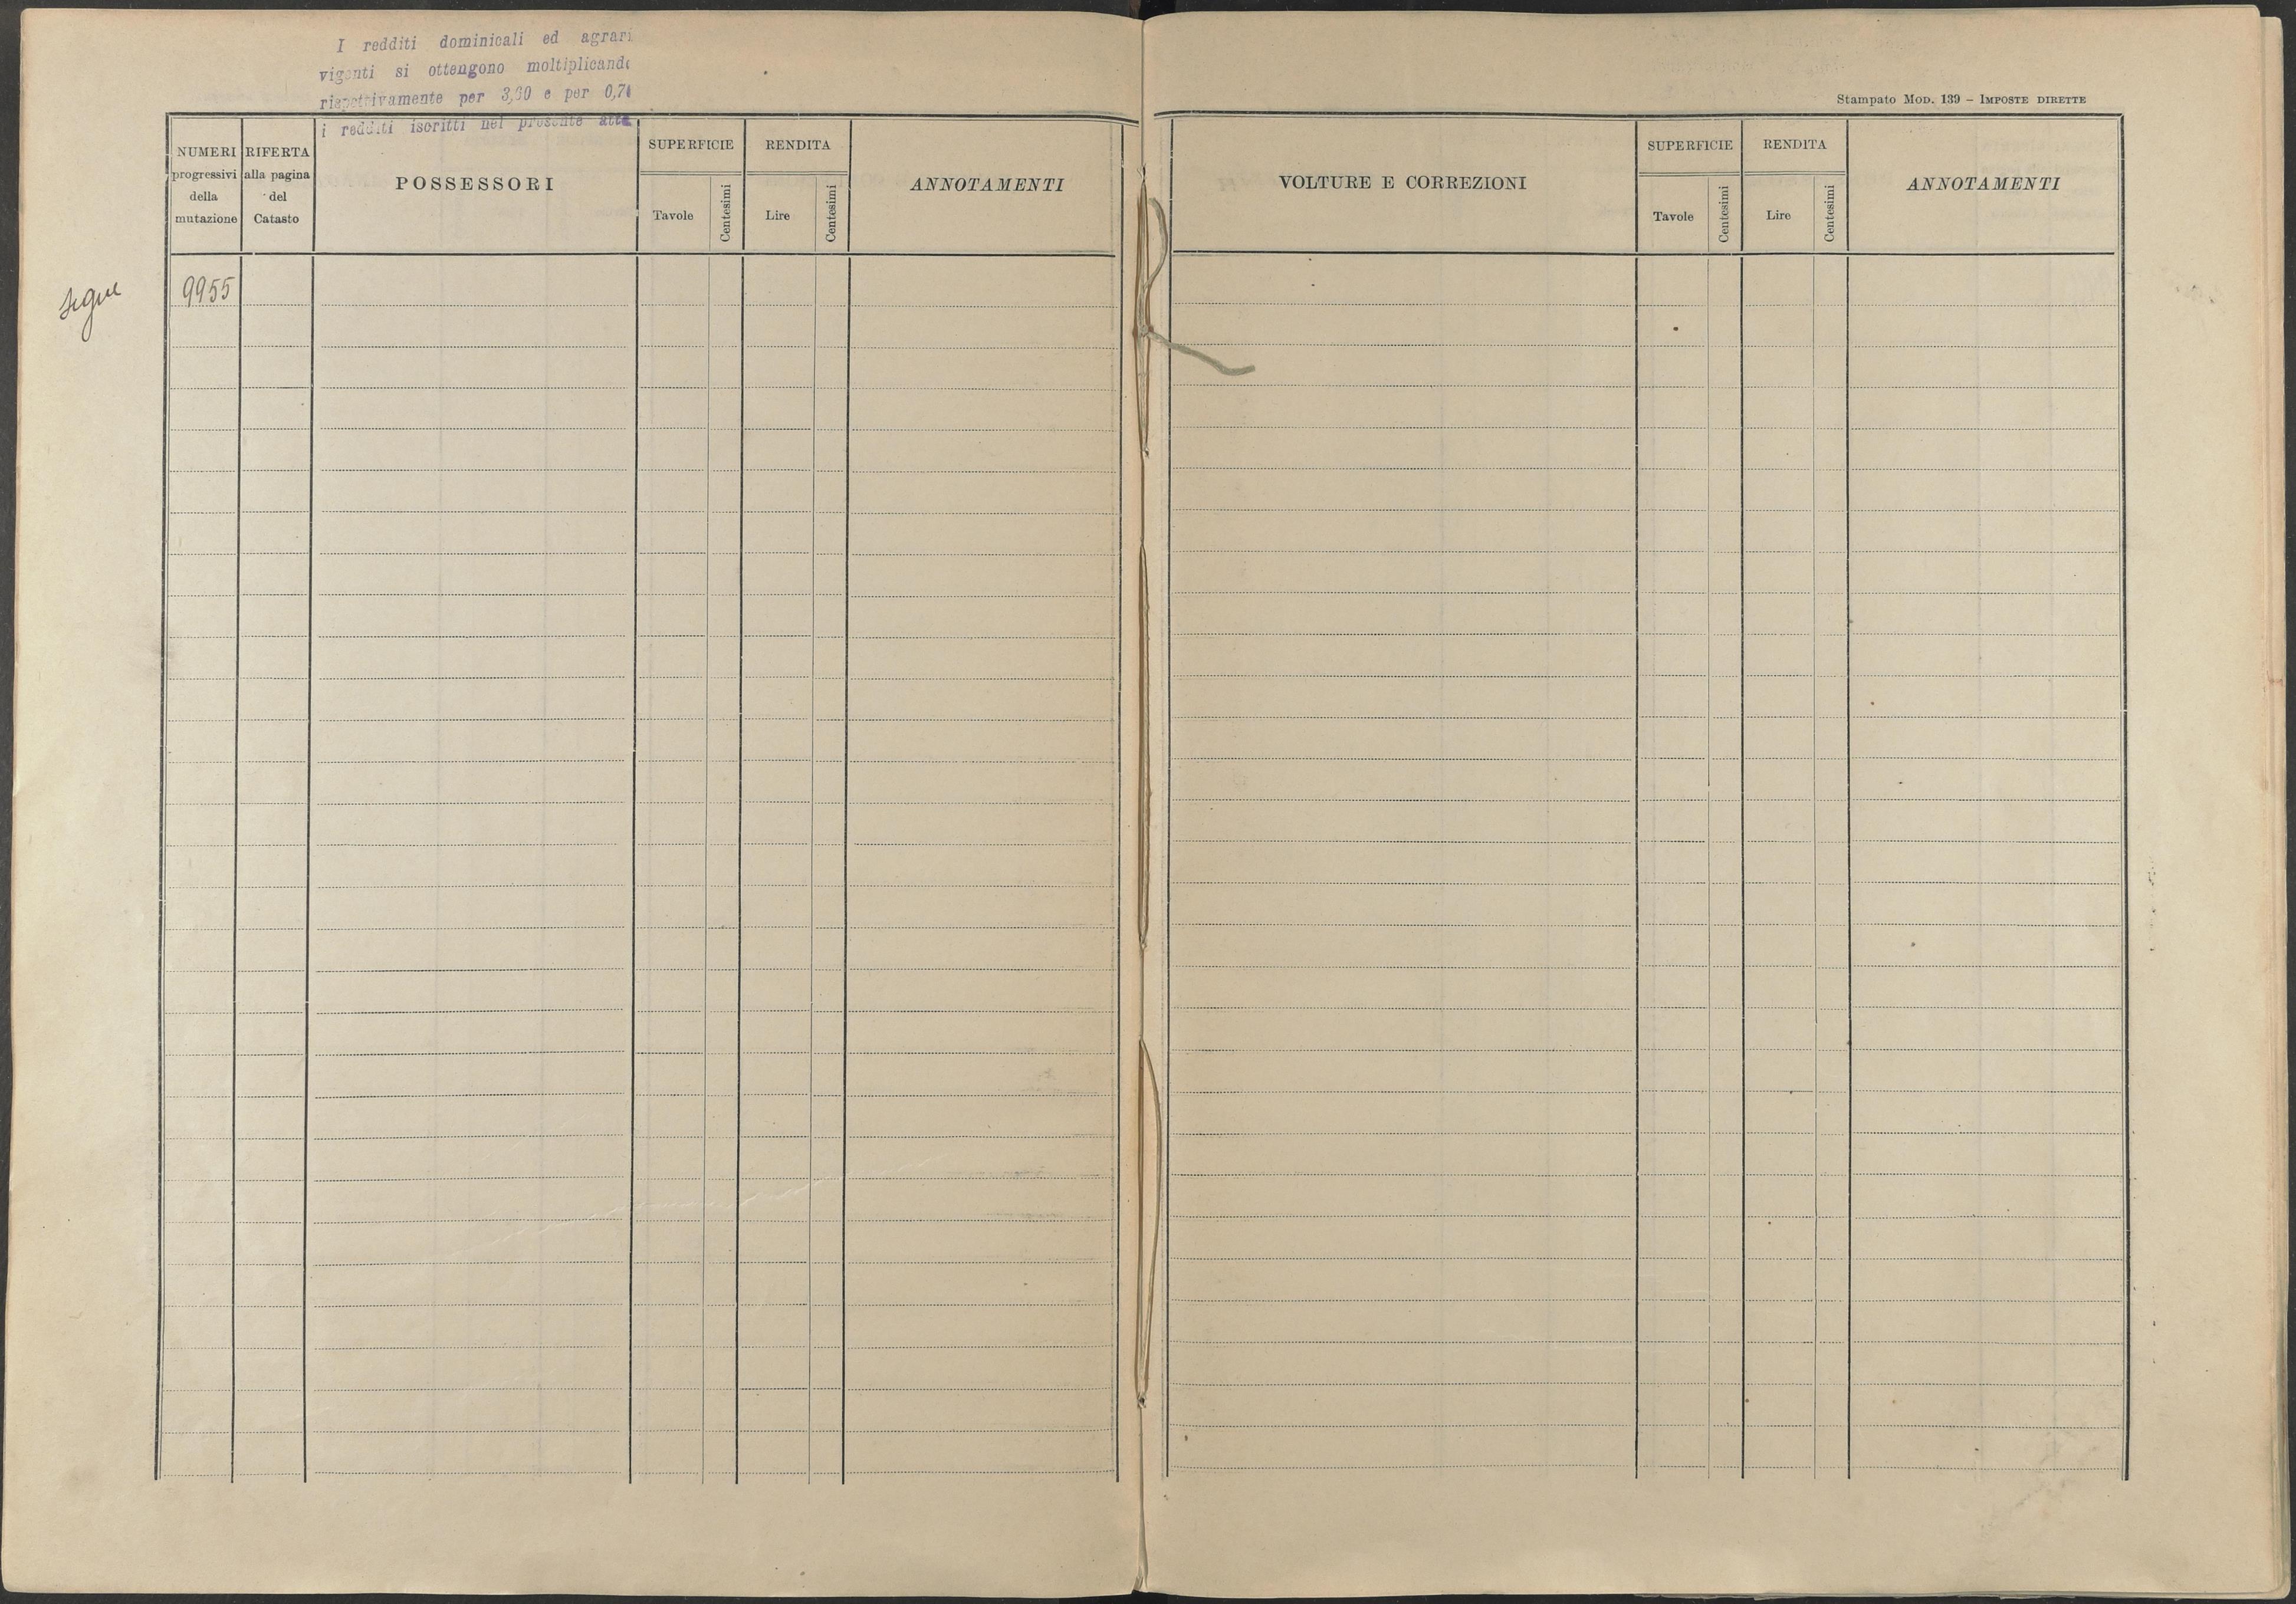 I redditi dominicali ed agrari
vigenti si ottengono moltiplicando
rispettivamente per 3,60 e per
i redditi iscritti nel presente atto
Stampato MOD. 139 – IMPOSTE DIRETTE
NUMERI
progressivi
della
mutazione
RIFERTA
alla pagina
del
Catasto
POSSESSORI
SUPERFICIE
Tavole
Centesimi
RENDITA
Lire
Centesimi
ANNOTAMENTI
VOLTURE E CORREZIONI
SUPERFICIE
Tavole
Centesimi
RENDITA
Lire
Centesimi
ANNOTAMENTI
segue
9955